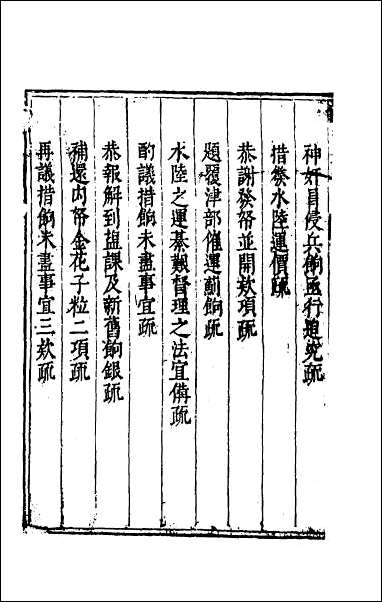 神奸冒侵兵餉亟行追究疏
措發水陸運價疏
恭謝發帑並開款項疏
題覆津部催運薊餉疏
水陸之運綦艱督理之法宜備疏
酌議措餉未盡事宜疏
恭報解到鹽課及新舊餉銀疏
補還內帑金花子粒二項疏
再議措餉未盡事宜三款疏